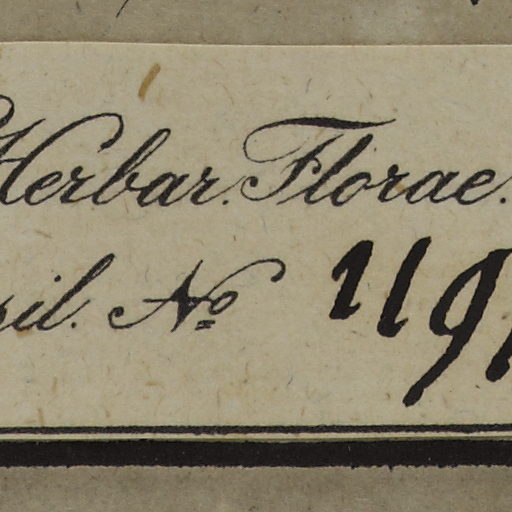 Herbar. Florae.
sil. No 119